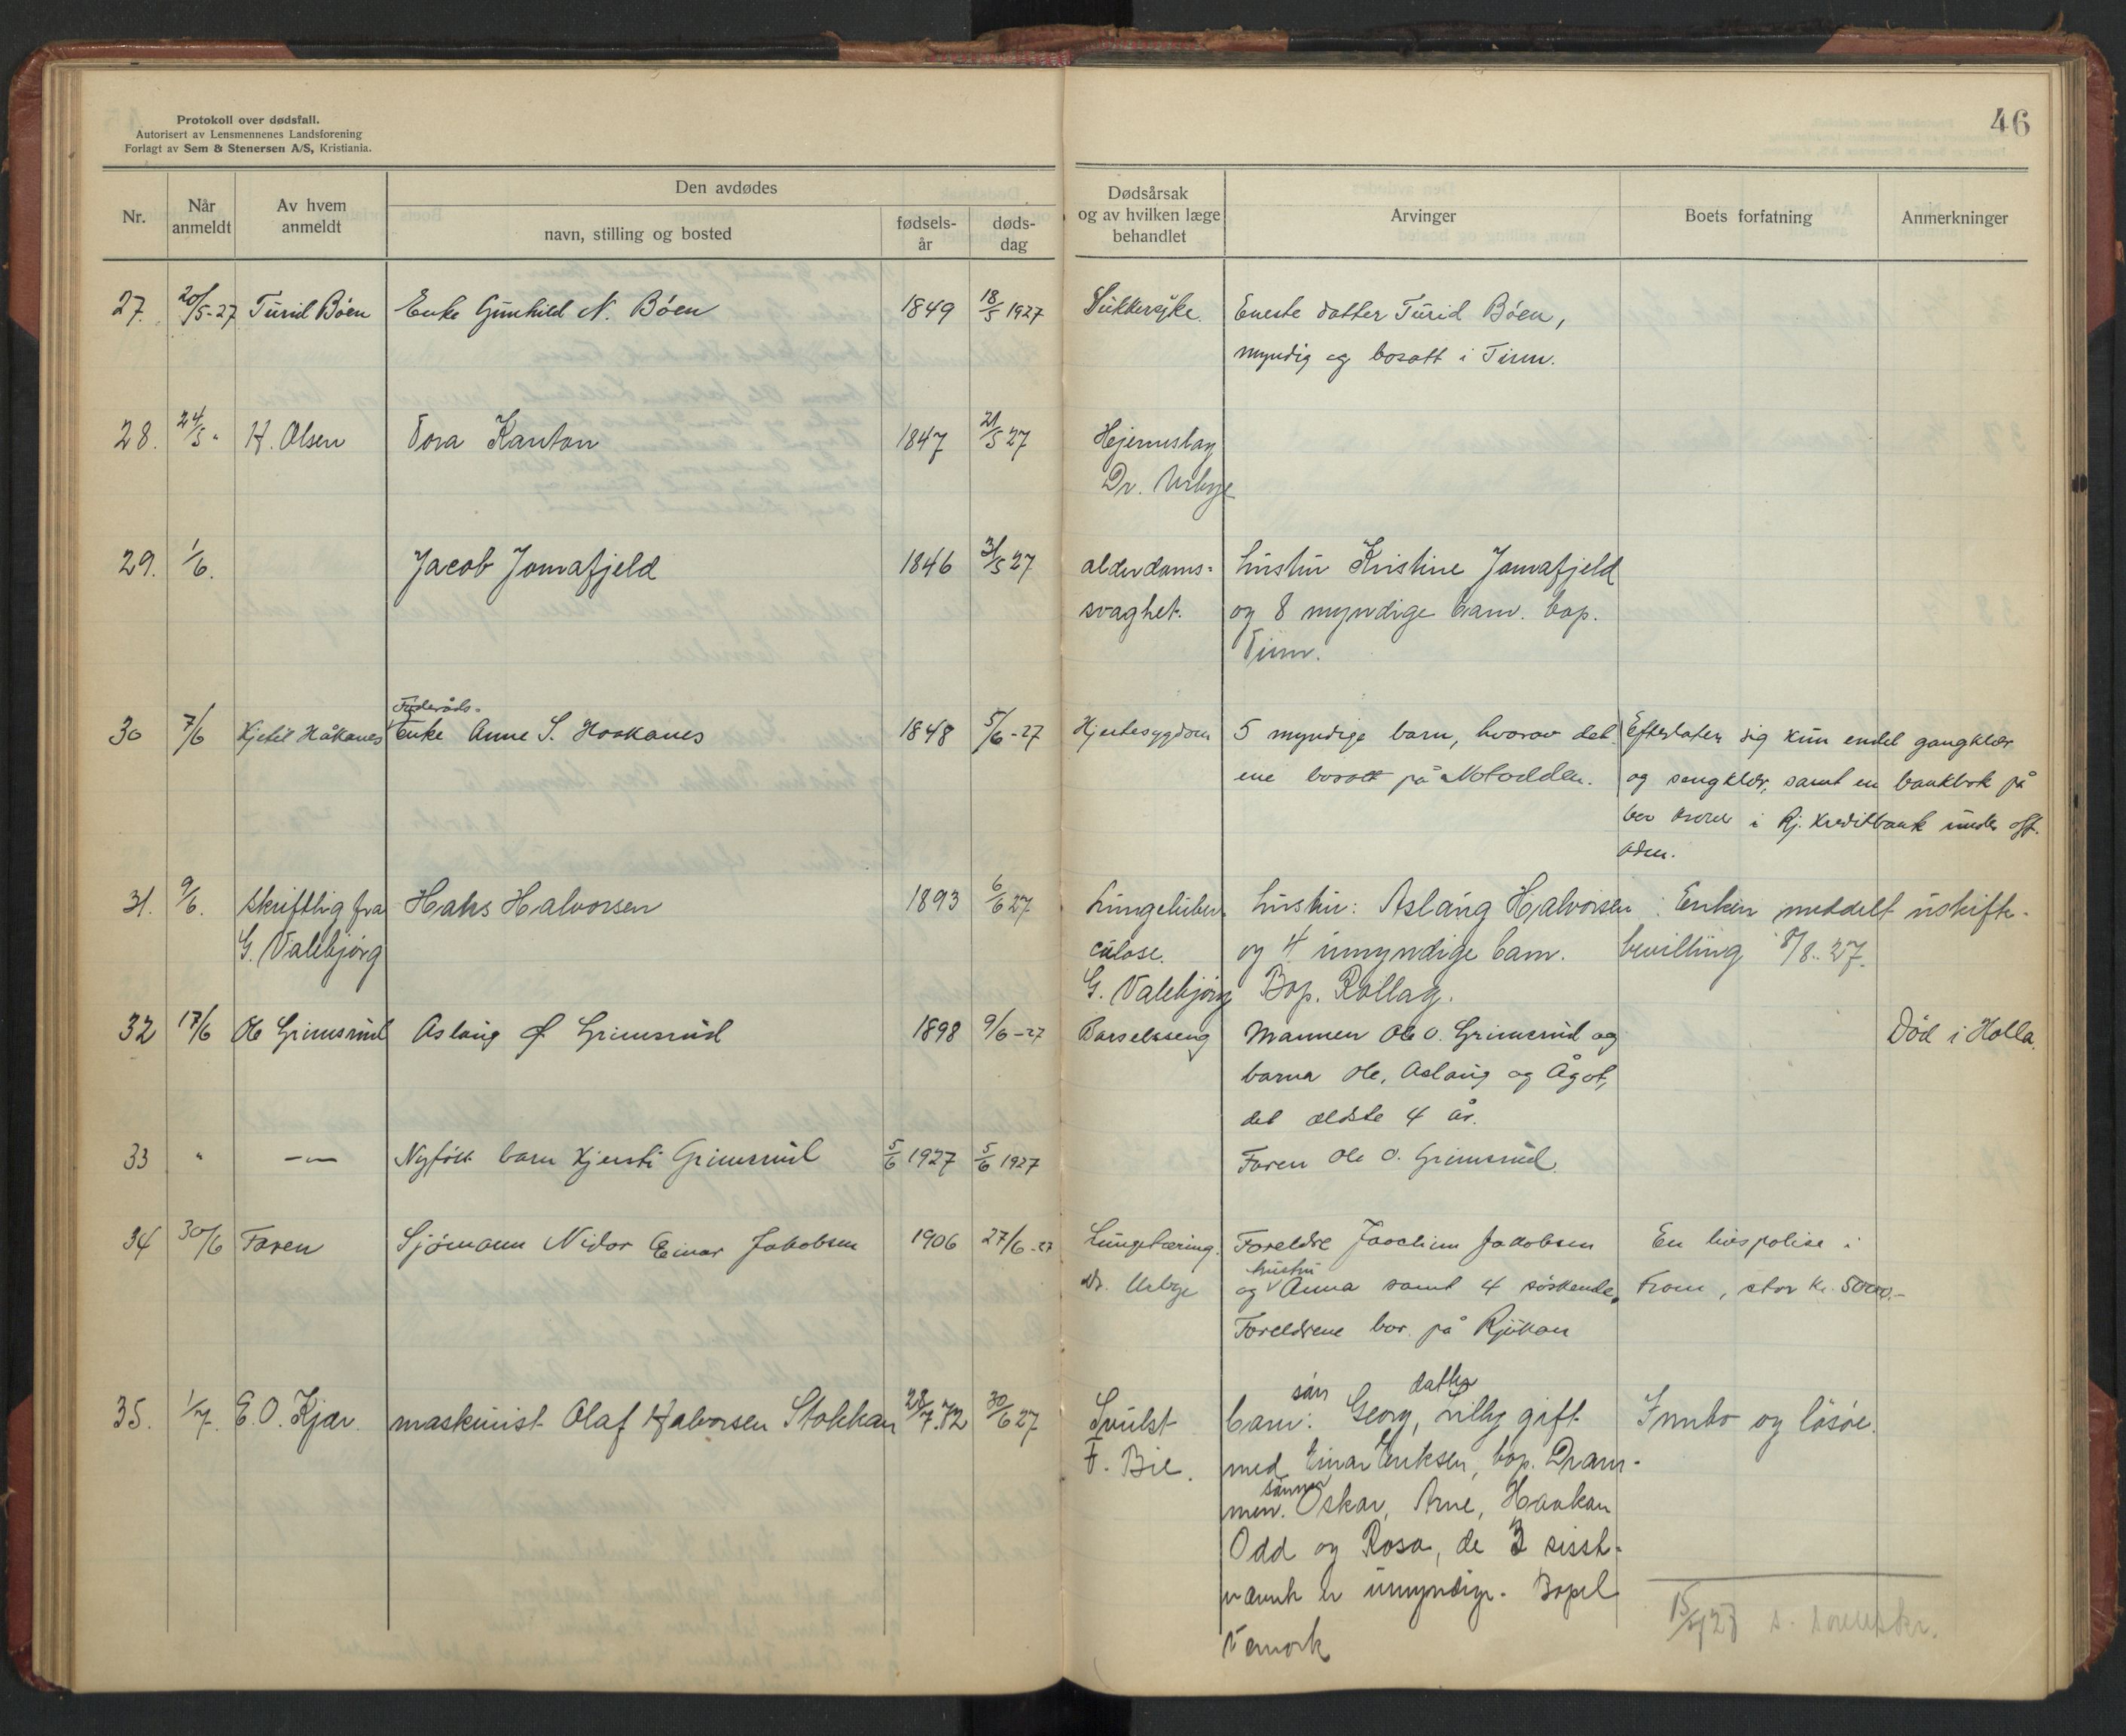 Protokoll over dødsfall.
Autorisert av Lensmennenes Landsforening
Forlagt av Sem & Stenersen A/S, Kristiania.
46
Nr.
Når anmeldt
Av hvem anmeldt
Den avdødes
navn, stilling og bosted
fødsels-år
døds-dag
Dødsårsak og av hvilken læge behandlet
Arvinger
Boets forfatning
Anmerkninger
27. 20/5-27 Turid Böen Enke Gunhild N. Böen 1849 18/5 1927 Sukkersyke. Eneste datter Turid Böen,
myndig og bosatt i Tinn.
28. 24/5 " H. Olsen Tora Kanton 1847 21/5 27 Hjerneslag
Dr. Urbye
29. 1/6. Jacob Jomafjeld 1846 31/5 27 alderdoms- hustru Kristine Jomafjeld
svaghet. og 8 myndige barn. bop.
Tinn.
Föderåds-
30 7/6 Kjetil Håkanes Enke Anne S. Haakanes 1848 5/6-27 Hjertesygdom 5 myndige barn, hvorav det Efterlater sig kun endel gangklær
ene bosatt på Notodden. og sengklær, samt en bankbok på
i Rj. Kreditbank under off.
adm.
31. 9/6. skriftlig fra Hans Halvorsen 1893 6/6 27 Lungetuber- hustru: Aslaug Halvorsen Enken meddelt uskifte-
G. Valebjørg culose. og 4 umyndige barn. bevilling 8/8. 27.
G. Valebjørg Bop. Rollag.
32 17/6 Ole Grimsrud Aslaug Grimsrud 1898 9/6-27 Barselseng Mannen Ole O. Grimsrud og Död i Holla.
barna Ole, Aslaug og Ågot,
det ældste 4 år.
33 " —"— Nyfött barn Kjersti Grimsrud 5/6 1927 5/6 1927 Faren Ole O. Grimsrud.
34 30/6 Faren Sjömann Nidar Einar Jakobsen 1906 27/6-27 Lungetæring. Foreldre Joachim Jakobsen En livspolise i
hustru
Dr. Urbye og Anna samt 4 söskende. Fram, stor kr. 5000.-
Foreldrene bor på Rjukan
sön datter
35. 1/7. E.O. Kjær. maskinist Olaf Halvorsen Stokkan 28/7.72 30/6 27 Svulst barn: Georg, Lilly gift Innbo og lösöre.
F. Bie. med Einar Eriksen, bop. Dram-
sönner
men. Oskar, Arne, Haakan
Odd og Rosa, de 3 sisst-
nævnte er umyndige. Bopel
Vemork